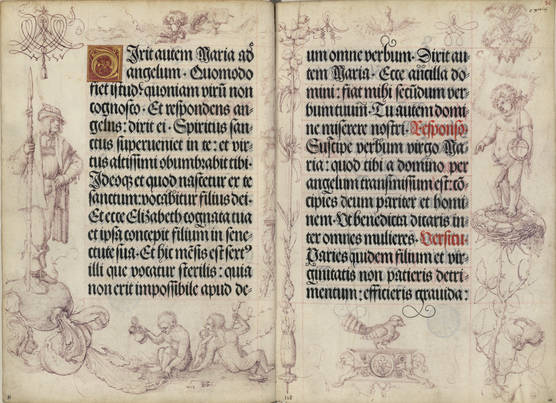 Dixit autem Maria ad
angelum. Quomodo
fiet istud: quoniam virū non
cognosco. Et respondens an-
gelus: dixit ei. Spiritus san-
ctus superveniet in te: et vir-
tus altissimi obumbrabit tibi.
Ideoq; et quod nascetur ex te
sanctum: vocabitur filius dei.
Et ecce Elizabeth cognata tua
et ipsa concepit filium in sene-
ctute sua. Et hic mēsis est sext⁹
illi que vocatur sterilis: quia
non erit impossibile apud de-
um omne verbum. Dixit au-
tem Maria. Ecce ancilla do-
mini: fiat mihi secūdum ver-
bum tuum. Tu autem domi-
ne miserere nostri. Responso.
Suscipe verbum virgo Ma-
ria: quod tibi a domino per
angelum transmissum est: cō-
cipies deum pariter et homi-
nem. Ut benedicta dicaris in-
ter omnes mulieres. Versicu.
Paries quidem filium et vir-
ginitatis non patieris detri-
mentum: efficieris gravida: